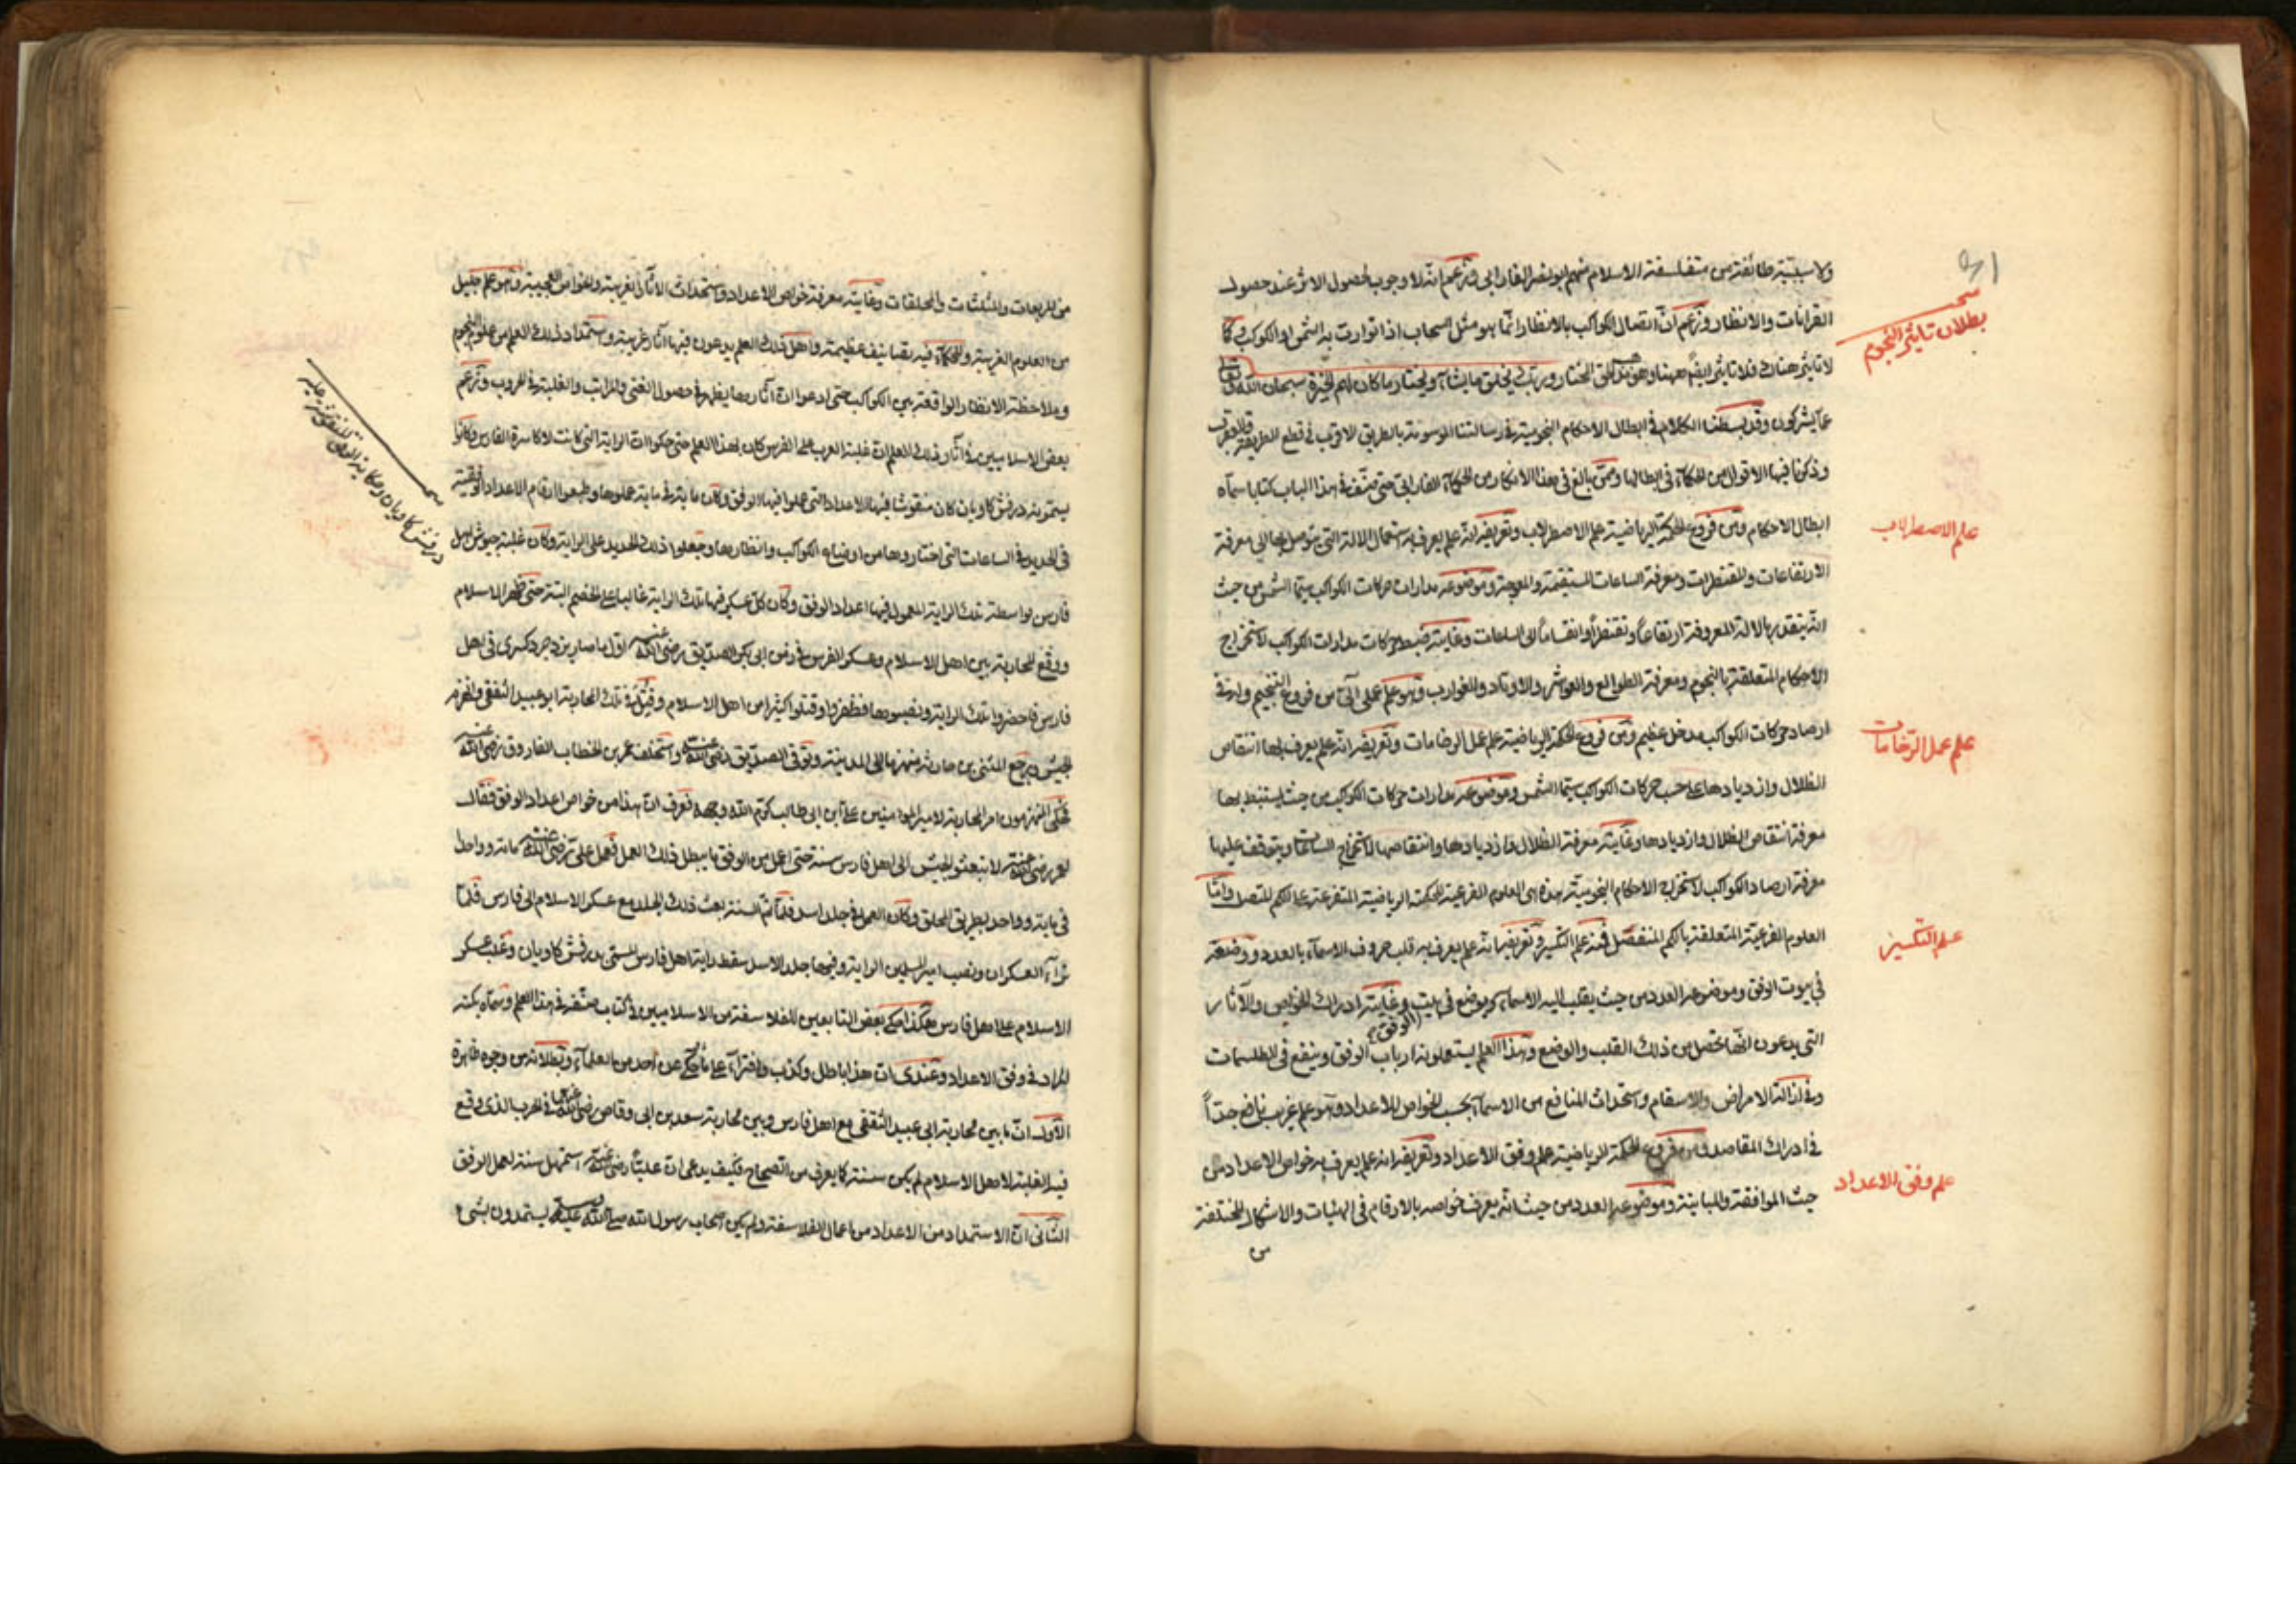 ولا سببية طائفة من متفلسفة الاسلام منهم ابو نصر الفارابي وزعم انه لا وجوب لحصول الاثر عند حصول
القرانات والانظار وزعم ان اتصال الكواكب بالانظار انما هو مثل السحاب اذا توارت به الشمس او الكواكب وكما
بطلان تاثير النجوم
لا تاثير هناك فلا تاثير ايضا ههنا وهو الحق المختار وربك يخلق ما يشاء ويختار ما كان لهم الخيرة سبحان الله وتعالى
عما يشركون وقد بسطنا الكلام في ابطال الاحكام النجومية في رسالتنا الموسومة بالطريق الاقرب في قطع الطريقة والعقرب
وذكرنا فيها الاقوال من الحكماء في ابطالها وممن بالغ في هذا الانكار من الحكماء الفارابي حتى صنف في هذا الباب كتابا سماه
ابطال الاحكام ومن فروع الحكمة الرياضية علم الاصطرلاب وتعريفه انه علم يعرف به استعمال الالة التي يتوصل بها الى معرفة
علم الاصطرلاب
الارتفاعات والمقنطرات ومعرفة الساعات المستقيمة والمعوجة وموضوعه مدارات حركات الكواكب سيما الشمس من حيث
انه يتقدر بالالة المعروفة ارتفاعا وتقنطرا وانقساما الى الساعات وغايته ضبط حركات مدارات الكواكب لاستخراج
الاحكام المتعلقة بالنجوم ومعرفة الطوالع والعواشر والاوتاد والغوارب وهو علم عملي آلي من فروع التنجيم وله في
ارصاد حركات الكواكب مدخل عظيم ومن فروع الحكمة الرياضية علم عمل الرخامات وتعريفه انه علم يعرف بها انتقاص
علم عمل الرخامات
الظلال وازديادها على حسب حركات الكواكب سيما الشمس وموضوعه مدارات حركات الكواكب من حيث يستنبط بها
معرفة انتقاص الظلال وازديادها وغايته معرفة الظلال وازديادها وانتقاصها لاستخراج الساعات ويتوقف عليها
معرفة ارصاد الكواكب لاستخراج الاحكام النجومية هذه هي العلوم الفرعية للحكمة الرياضية المتفرعة على الكم المتصل واما
العلوم الفرعية المتعلقة بالكم المنفصل فمنه علم التكسير وتعريفه انه علم يعرف به قلب حروف الاسماء بالعدد ووضعه
علم التكسير
في بيوت الوفق وموضوعه العدد من حيث يقلب اليه الاسماء ويوضع في بيت الوفق وغايته ادراك الخواص والآثار
التي يدعون انها تحصل من ذلك القلب والوضع وهذا العلم يستعلمونه ارباب الوفق وينفع في الطلسمات
وفي ازالة الامراض والاسقام واستحداث المنافع من الاسماء بحسب الخواص للاعداد وهو علم غريب نافع جدا
في ادراك المقاصد ومن فروع الحكمة الرياضية علم وفق الاعداد وتعريفه انه علم يعرف به خواص الاعداد من
علم وفق الاعداد
حيث الموافقة والمباينة وموضوعه العدد من حيث انه يعرف خواصه بالارقام في الهيئات والاشكال المختلفة
من
من المربعات والمثلثات والمحلقات وغايته معرفة خواص الاعداد واستحداث الاثار الغريبة والخواص العجيبة وهو علم جليل
من العلوم الغريبة وللحكماء فيه تصانيف عظيمة واهل ذلك العلم يدعون فيها آثار غريبة واستمداد ذلك العلم من علوم النجوم
وملاحظة الانظار الواقعة بين الكواكب حتى ادعوا ان آثارها يظهر في حصول الغنى والمراتب والغلبة في الحروب وزعم
بعض الاسلاميين من آثار ذلك العلم ان غلبة العرب على الفرس كان بهذا العلم حتى حكوا ان الراية التي كانت لاكاسرة الفارس وكانوا
يسمونه درفش كاويان كان منقوشا فيها الاعداد التي عملوا فيها الوفق وكان ماية في ماية عملوها وطبعوا ارقام الاعداد الوفقية
في الحديد في الساعات التي اختاروها من اوضاع الكواكب وانظارها وجعلوا ذلك الحديد على الراية وكان غلبة جيوش اهل
فارس بواسطة تلك الراية المعمول فيها اعداد الوفق وكان كل عسكر فيها تلك الراية غالبا على الخصم البتة حتى ظهر الاسلام
ووقع المحاربة بين اهل الاسلام وعسكر الفرس في زمن ابي بكر الصديق رضي الله عنه اول ما صار يزدجرد كسرى في اهل
فارس فاحضروا تلك الراية ونصبوها فظفروا وقتلوا كثيرا من اهل الاسلام وقتل في تلك المحاربة ابو عبيد الثقفي وانهزم
الجيش ورجع المثنى بن حارثة منهزما الى المدينة وتوفي الصديق رضي الله عنه واستخلف عمر بن الخطاب الفاروق رضي الله عنه
فحكى المنهزمون امر المحاربة لامير المومنين علي ابن ابي طالب كرم الله وجهه فعرف ان هذا من خواص اعداد الوفق فقال
لعمر رضي الله عنه لا تبعثوا الجيش الى اهل فارس سنة حتى اعمل من الوفق ما يبطل ذلك العمل فعمل علي رضي الله عنه ماية وواحدا
في ماية وواحد بطريق المحلق وكان العمل في جلد اسد فلما تم السنة بعث ذلك الجلد مع عسكر الاسلام الى فارس فلما
تراء العسكران ونصب امير المسلمين الراية وفيها جلد الاسد سقط راية اهل فارس المسمى بدرفش كاويان وغلب عسكر
الاسلام على اهل فارس هكذا حكى بعض التابعين للفلاسفة من الاسلاميين في كتاب صنفه في هذا العلم وسماه بكنه
المراد في وفق الاعداد وعندي ان هذا باطل وكذب وافتراء على ما حكي عن احد من العلماء وبطلانه من وجوه ظاهرة
الاول ان ما بين محاربة ابي عبيد الثقفي مع اهل فارس وبين محاربة سعد بن ابي وقاص رضي الله عنه في الحرب الذي وقع
فيه الغلبة لاهل الاسلام لم يكن سنة كما يعرف من الصحاح فكيف يدعى ان عليا رضي الله عنه استمهل سنة لعمل الوفق
الثاني ان الاستمداد من الاعداد من اعمال الفلاسفة ولم يكن اصحاب رسول الله صلى الله عليه وسلم يستمدون بشيء
درفش كاويان وحكاية الوفق